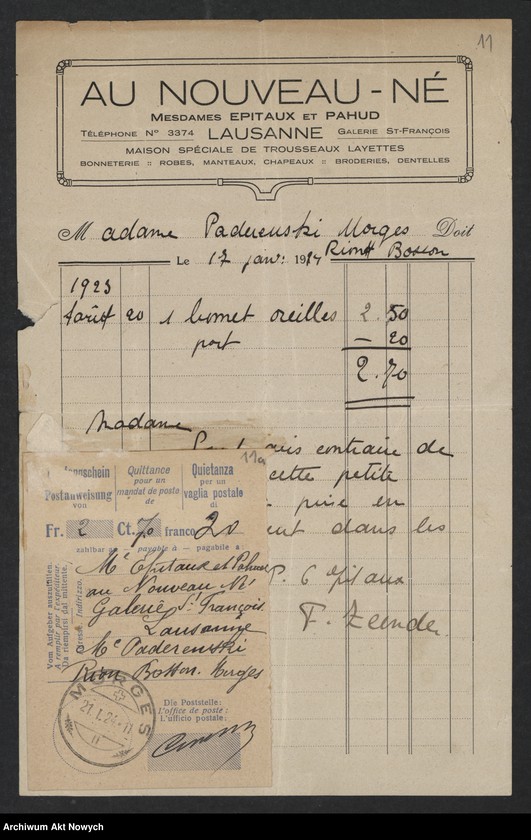 11
AU NOUVEAU-NÉ
MESDAMES EPITAUX ET PAHUD
TÉLÉPHONE Nº 3374 LAUSANNE GALERIE ST-FRANÇOIS
MAISON SPÉCIALE DE TROUSSEAUX LAYETTES
BONNETERIE :: ROBES, MANTEAUX, CHAPEAUX :: BRODERIES, DENTELLES
Madame Paderenski Morges Doit
Le 17 janv: 1924 Riond Bosson
1923
20 1 bonnet oreilles 2.50
port — 20
2.70
Madame
contraire de
cette petite
en
dans les
P.
F. Zeender
11a
Postanweisung
von
Quittance
pour un
mandat de poste
de
Quietanza
per un
vaglia postale
di
Fr. 2 Ct. 70 franco 20
zahlbar an — payable à — pagabile a
Vom Aufgeber auszufüllen.
A remplir par l'expéditeur.
Da riempirsi dal mittente.
Adresse. Indirizzo.
Mes Epitaux et Pahud
au Nouveau Né
Galerie St. François
Lausanne
Me Paderenski
Rion Bosson. Morges
MORGES
21.I.24
Die Poststelle:
L'office de poste:
L'ufficio postale:
Archiwum Akt Nowych